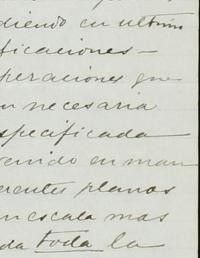 diendo en ultimo
ficaciones —
peraciones que
n necesaria
specificada
enido en man
erentes planos
n escala mas
da toda la